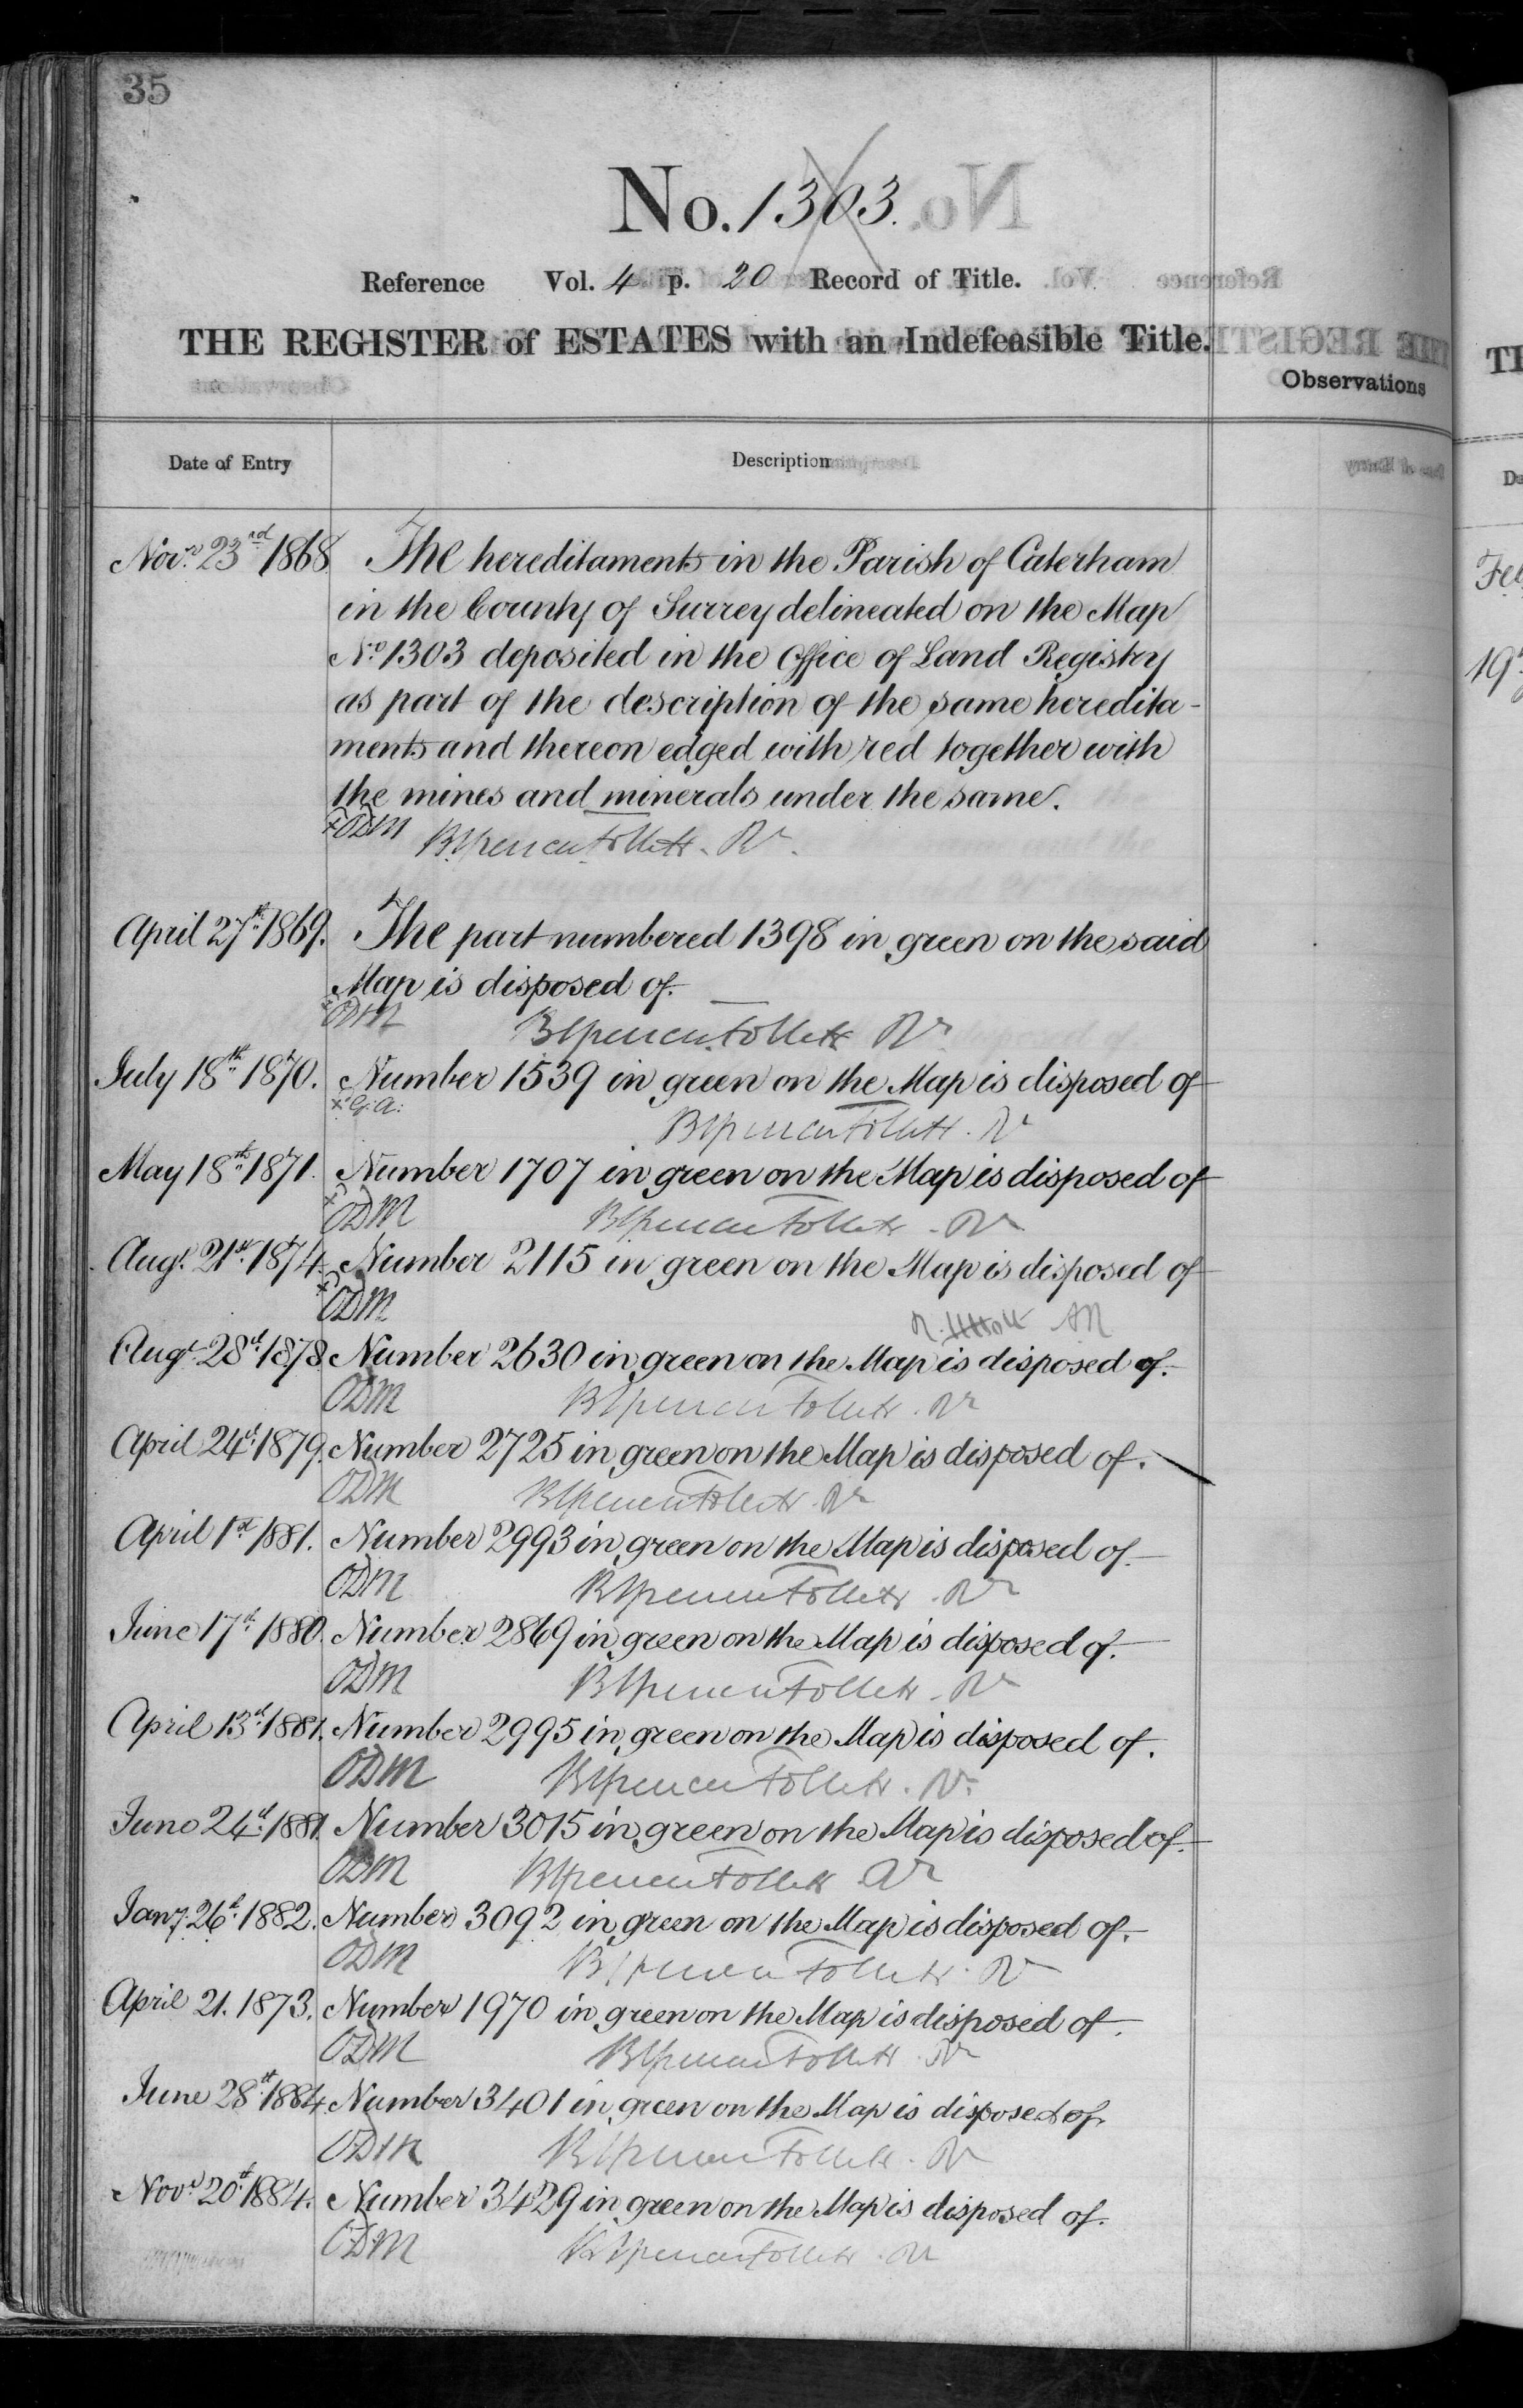 35
No. 1303.
Reference Vol. 4 p. 20 Record of Title.
THE REGISTER of ESTATES with an Indefeasible Title.
Observations
Date of Entry Description
Novr. 23rd 1868 The hereditaments in the Parish of Caterham
in the County of Surrey delineated on the Map
No. 1303 deposited in the Office of Land Registry
as part of the description of the same heredita-
ments and thereon edged with red together with
the mines and minerals under the same.
ODM Brent Spencer Follett. Rr.
April 27th 1869. The part numbered 1398 in green on the said
Map is disposed of.
ODM BSpencer Follett Rr
July 18th 1870. Number 1539 in green on the Map is disposed of
G.A. BSpencer Follett. Rr
May 18th 1871. Number 1707 in green on the Map is disposed of
ODM BSpencer Follett. Rr
Augt. 21st 1874 Number 2115 in green on the Map is disposed of
ODM
Augt. 28th 1878. Number 2630 in green on the Map is disposed of.
ODM BSpencer Follett. Rr
April 24th 1879. Number 2725 in green on the Map is disposed of.
ODM BSpencer Follett. Rr
April 1st 1881. Number 2993 in green on the Map is disposed of.
ODM BSpencer Follett. Rr
June 17th 1880. Number 2869 in green on the Map is disposed of.
ODM BSpencer Follett. Rr
April 13th 1881. Number 2995 in green on the Map is disposed of.
ODM BSpencer Follett. Rr
June 24th 1881. Number 3015 in green on the Map is disposed of.
ODM BSpencer Follett Rr
Jany. 26th 1882. Number 3092 in green on the Map is disposed of.
ODM BSpencer Follett. Rr
April 21. 1873. Number 1970 in green on the Map is disposed of.
ODM BSpencer Follett. Rr
June 28th 1884. Number 3401 in green on the Map is disposed of.
ODM BSpencer Follett. Rr
Novr. 20th 1884. Number 3429 in green on the Map is disposed of.
ODM BSpencer Follett. Rr